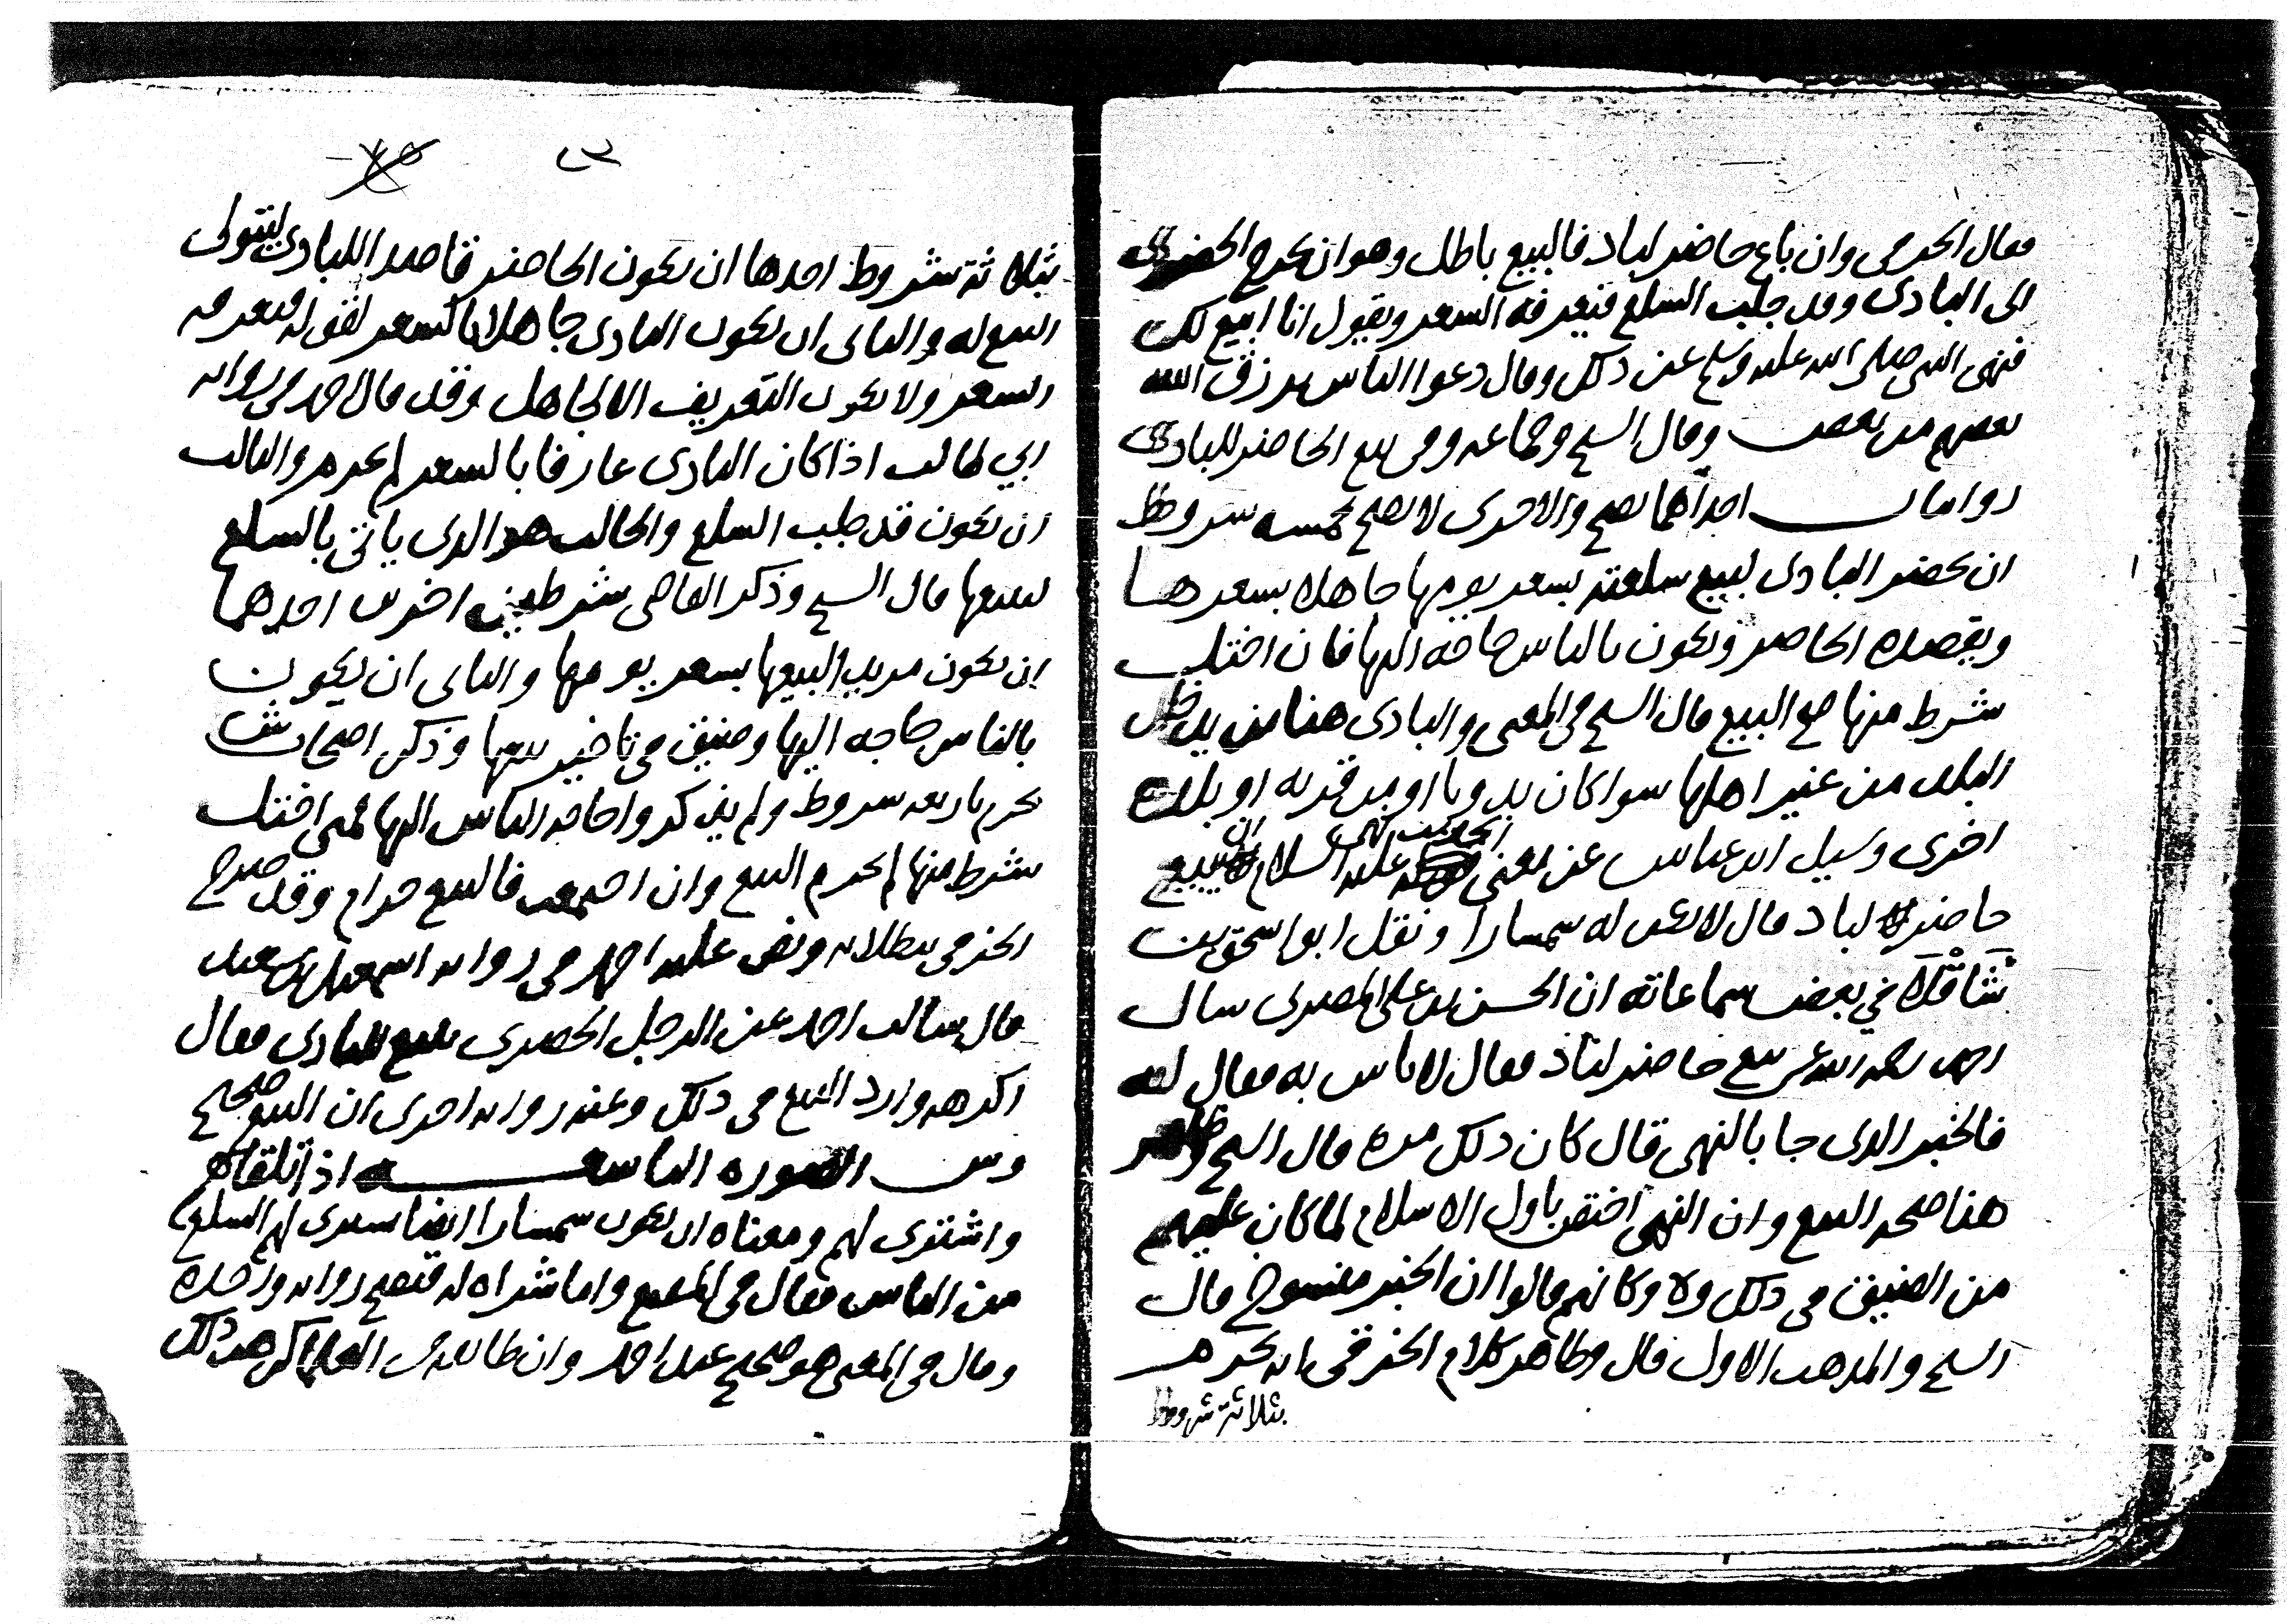 فقال الخرقي وان باع حاضر لباد فالبيع باطل وهو ان يخرج الحضري
الى البادي وقد جلب السلع فيعرفه السعر ويقول انا ابيع لك
فنهى النبي صلى الله عليه وسلم عن ذلك وقال دعوا الناس يرزق الله
بعضهم من بعض وقال الشيخ وجماعه وفي بيع الحاضر للبادي
روايتان احداهما يصح والاخرى لا يصح بخمسه شروط
ان يحضر البادي لبيع سلعته بسعر يومها جاهلا بسعرها
ويقصده الحاضر ويكون بالناس حاجه اليها فان اختل
شرط منها صح البيع قال الشيخ في المغني والبادي هنا من يدخل
البلد من غير اهلها سوا كان بدويا او من قريه او بلدة
اخرى وسيل ابن عباس عن معنى الحديث نهى عليه السلام ان يبيع
حاضر لباد قال لا يكون له سمسارا ونقل ابو اسحق بن
شَاقْلَا في بعض سماعاته ان الحسن بن علي المصري سال
احمد رحمه الله عن بيع حاضر لباد فقال لا باس به فقال له
فالخبر الذي جا بالنهي قال كان ذلك مرة قال الشيخ وظاهر
هذا صحه البيع وان النهي اختص باول الاسلام لما كان عليهم
من الضيق في ذلك ولا وكانهم قالوا ان الخبر منسوخ قال
الشيخ والمذهب الاول قال وظاهر كلام الخرقي انه يحرم
بثلاثة شروط
٢٣
بثلاثة شروط احدها ان يكون الحاضر قاصد اللبادي ليتولى
البيع له والثاني ان يكون البادي جاهلا بالسعر لقوله فيعرفه
السعر ولا يكون التعريف الا لجاهل وقد قال احمد في روايه
ابي طالب اذا كان البادي عارفا بالسعر لم يحرم والثالث
ان يكون قد جلب السلع والجالب هو الذي ياتي بالسلع
ليبيعها قال الشيخ وذكر القاضي شرطين اخرين احدهما
ان يكون مريدا لبيعها بسعر يومها والثاني ان يكون
بالناس حاجه اليها وضيق في تاخير بيعها وذكر اصحاب ش
يحرم باربعه شروط ولم يذكروا حاجه الناس اليها فمتى اختل
شرط منها لم يحرم البيع وان اجتمعت فالبيع حرام وقد صرح
الخرقي ببطلانه ونص عليه احمد في روايه اسمعيل بن سعيد
قال سالت احمد عن الرجل الحضري يبيع للبادي فقال
اكرهه وارد البيع في ذلك وعنه روايه اخرى ان البيع صحيح
ومن الصوره التاسعه اذا تلقاهم
واشترى لهم ومعناه ان يكون سمسارا ايضا يشتري لهم السلع
من الناس فقال في المقنع واما شراه له فيصح روايه واحده
وقال في المغني هو صحيح عند احمد وان طايفه من العلما كره ذلك